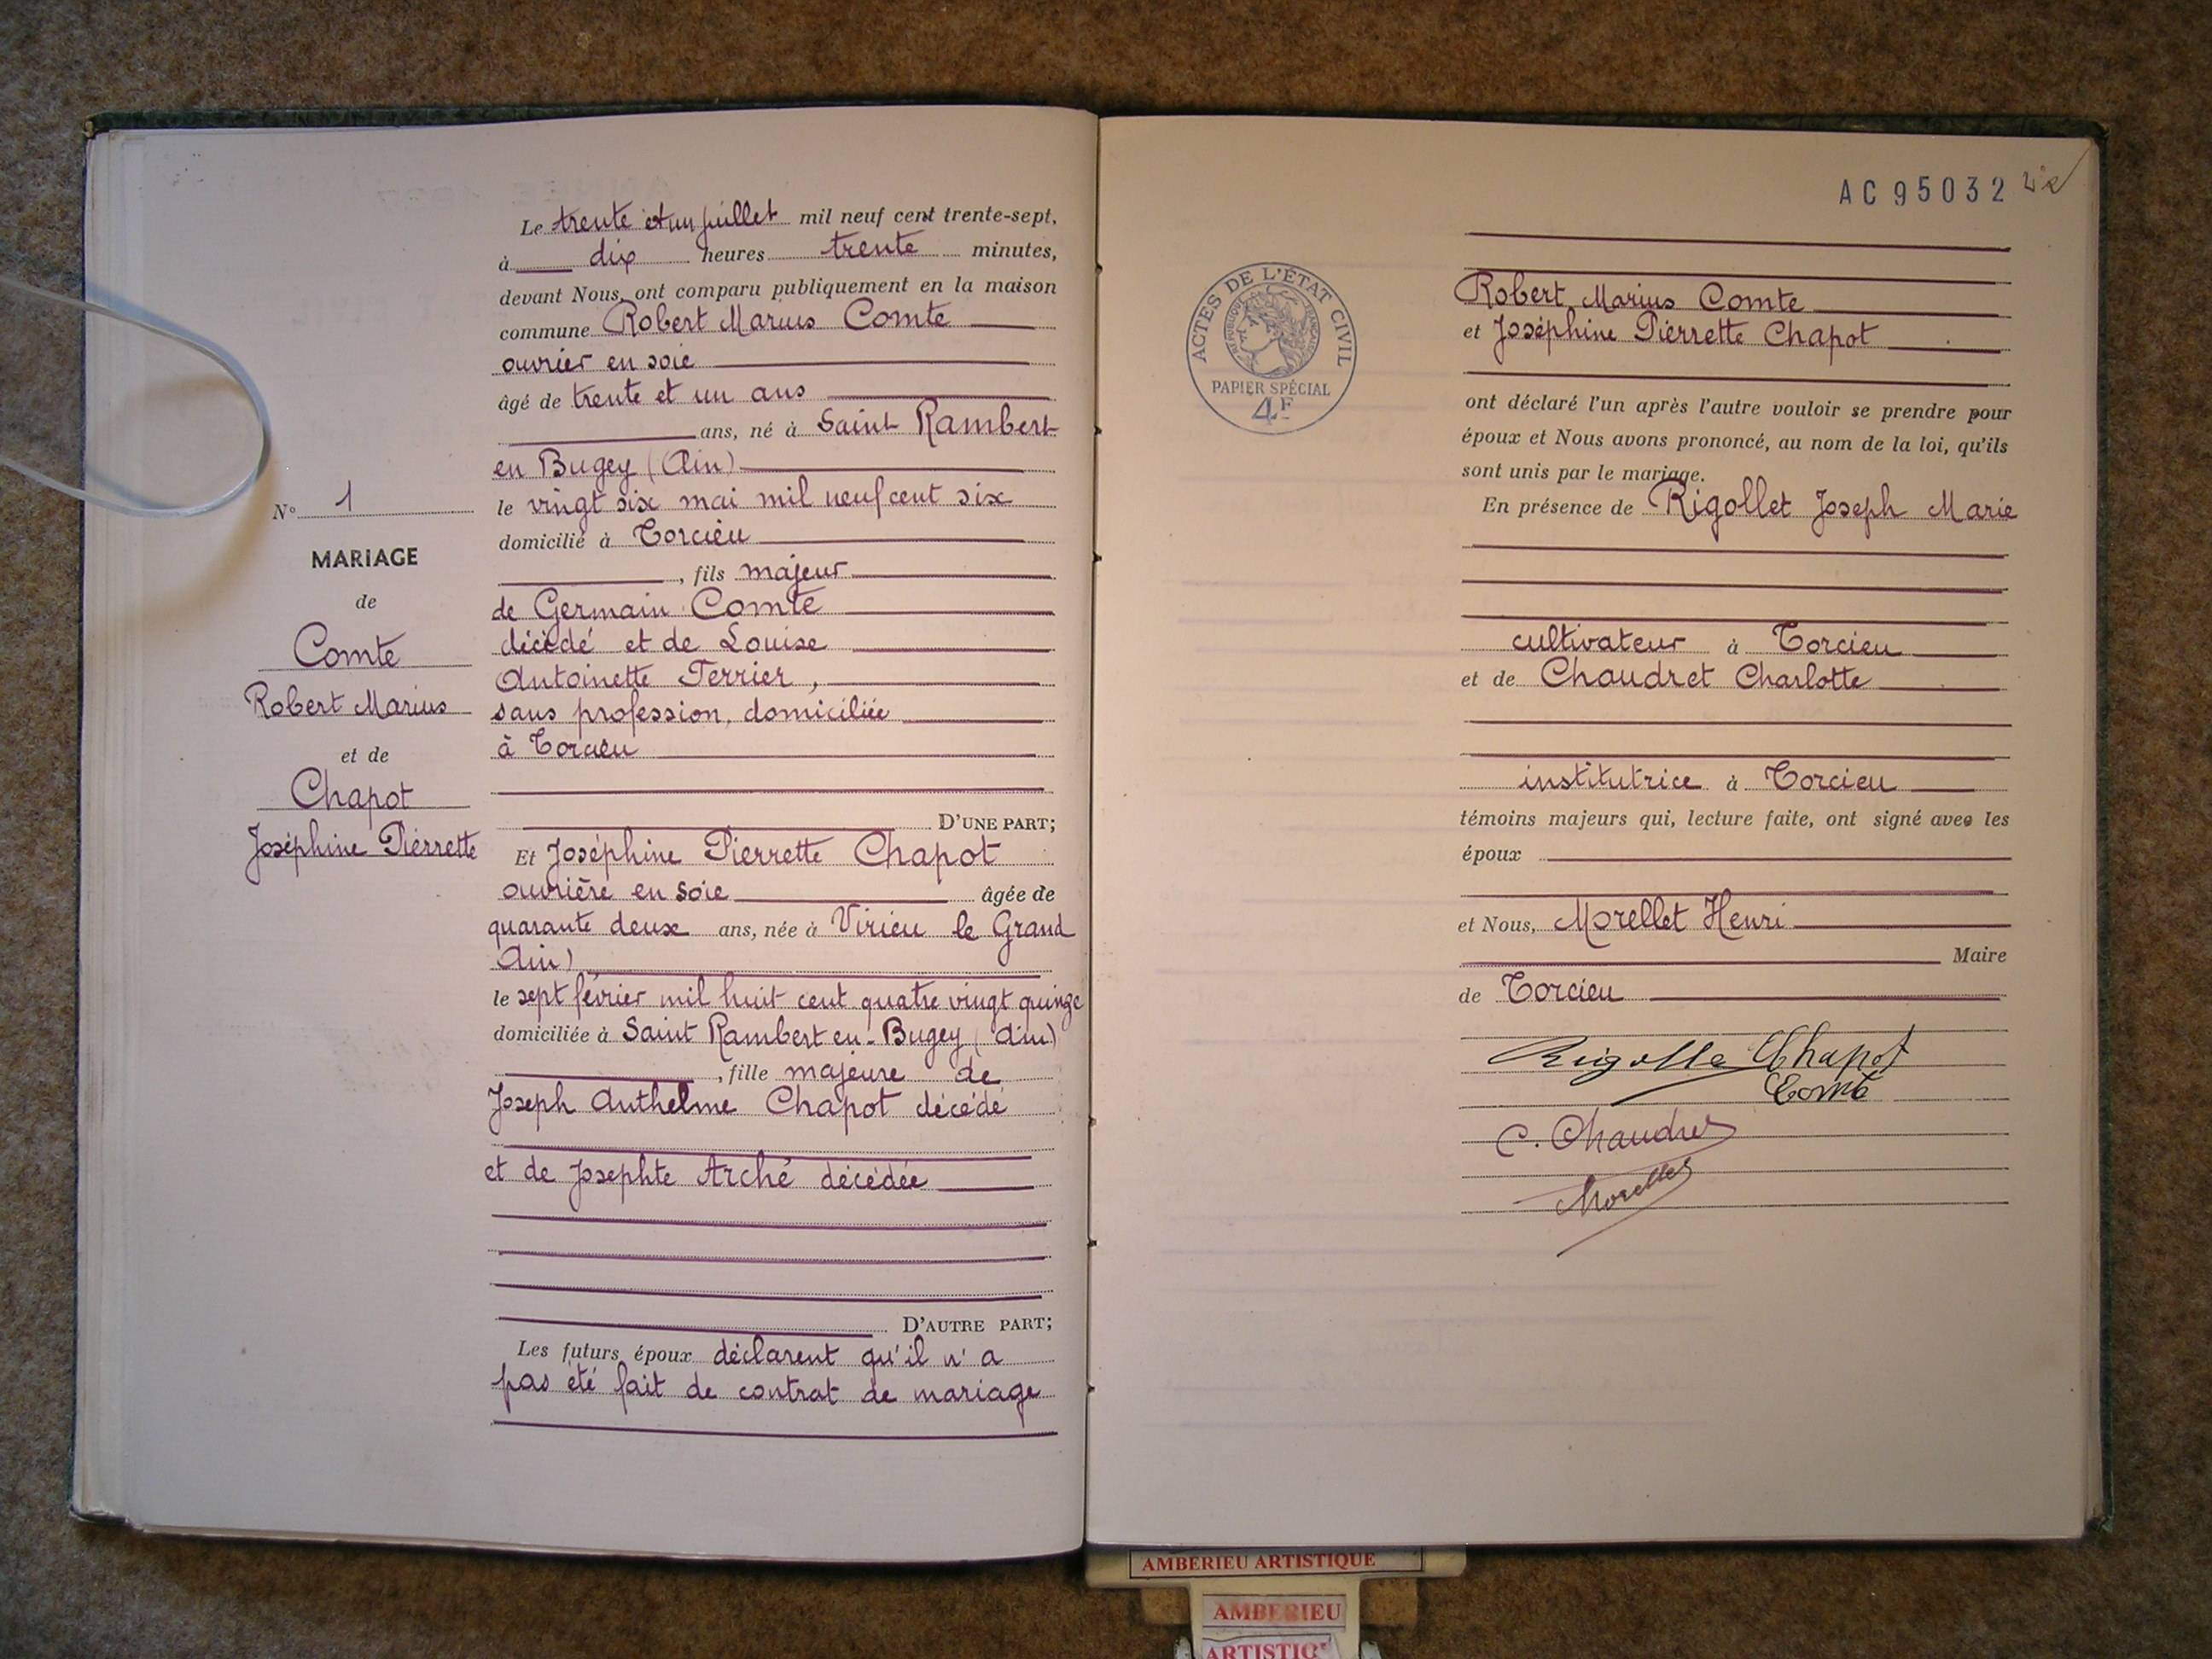 N° 1
MARIAGE
de
Comte
Robert Marius
et de
Chapot
Joséphine Pierrette
Le trente et un juillet mil neuf cent trente-sept,
à dix heures trente minutes,
devant Nous, ont comparu publiquement en la maison
commune Robert Marius Comte
ouvrier en soie
âgé de trente et un ans
ans, né à Saint Rambert
en Bugey (Ain)
le vingt six mai mil neuf cent six
domicilié à Torcieu
, fils majeur
de Germain Comte
décédé et de Louise
Antoinette Terrier,
sans profession, domiciliée
à Torcieu
D'UNE PART;
Et Joséphine Pierrette Chapot
ouvrière en soie âgée de
quarante deux ans, née à Virieu le Grand
Ain)
le sept février mil huit cent quatre vingt quinze
domiciliée à Saint Rambert en-Bugey (Ain)
, fille majeure de
Joseph Anthelme Chapot décédé
et de Josephte Arché décédée
D'AUTRE PART;
Les futurs époux déclarent qu'il n'a
pas été fait de contrat de mariage
AC 95032
ACTES DE L'ÉTAT CIVIL
RÉPUBLIQUE FRANÇAISE
PAPIER SPÉCIAL
4F
Robert Marius Comte
et Joséphine Pierrette Chapot
ont déclaré l'un après l'autre vouloir se prendre pour
époux et Nous avons prononcé, au nom de la loi, qu'ils
sont unis par le mariage.
En présence de Rigollet Joseph Marie
cultivateur à Torcieu
et de Chaudret Charlotte
institutrice à Torcieu
témoins majeurs qui, lecture faite, ont signé avec les
époux
et Nous, Morellet Henri
Maire
de Torcieu
Chapot
C. Chaudret
Morellet
AMBERIEU ARTISTIQUE
AMBERIEU